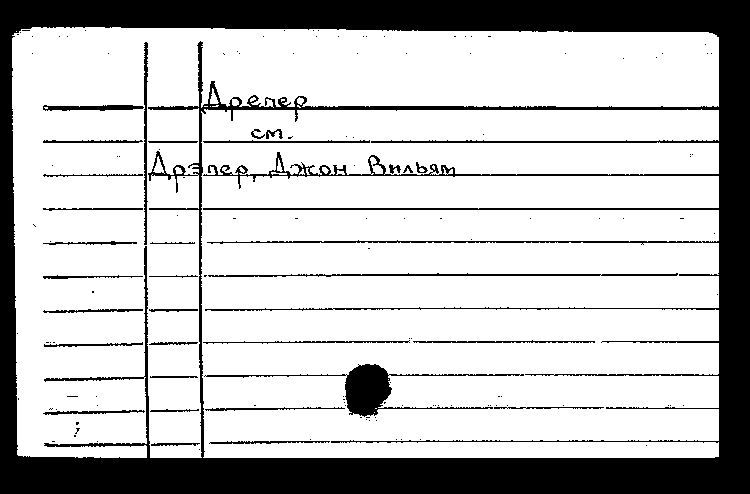 Дрепер
см.
Дрэпер, Джон Вильям